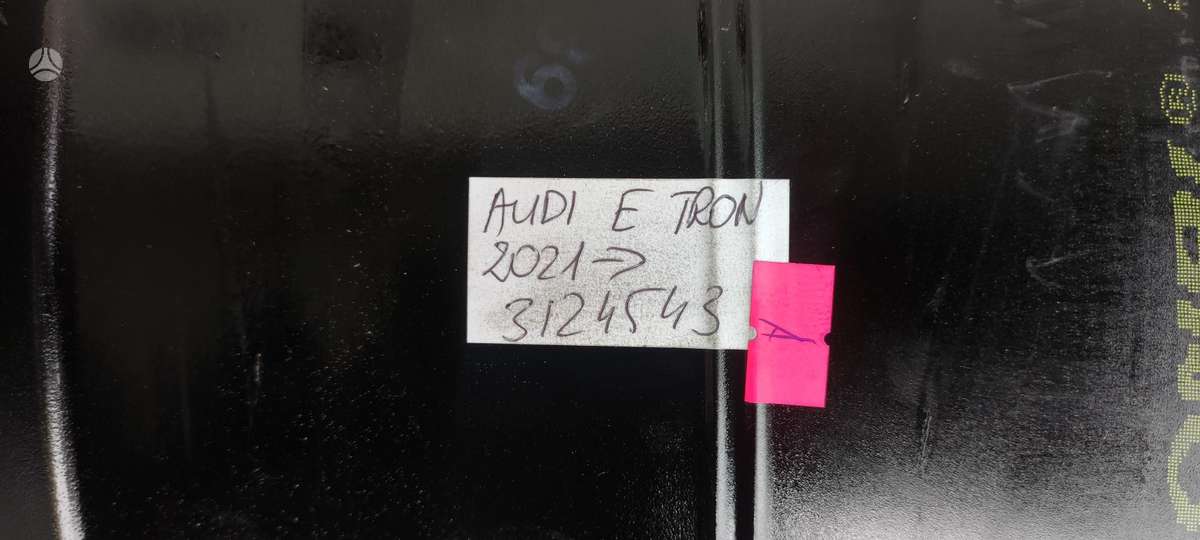 AUDI E TRON
2021->
3124543
A